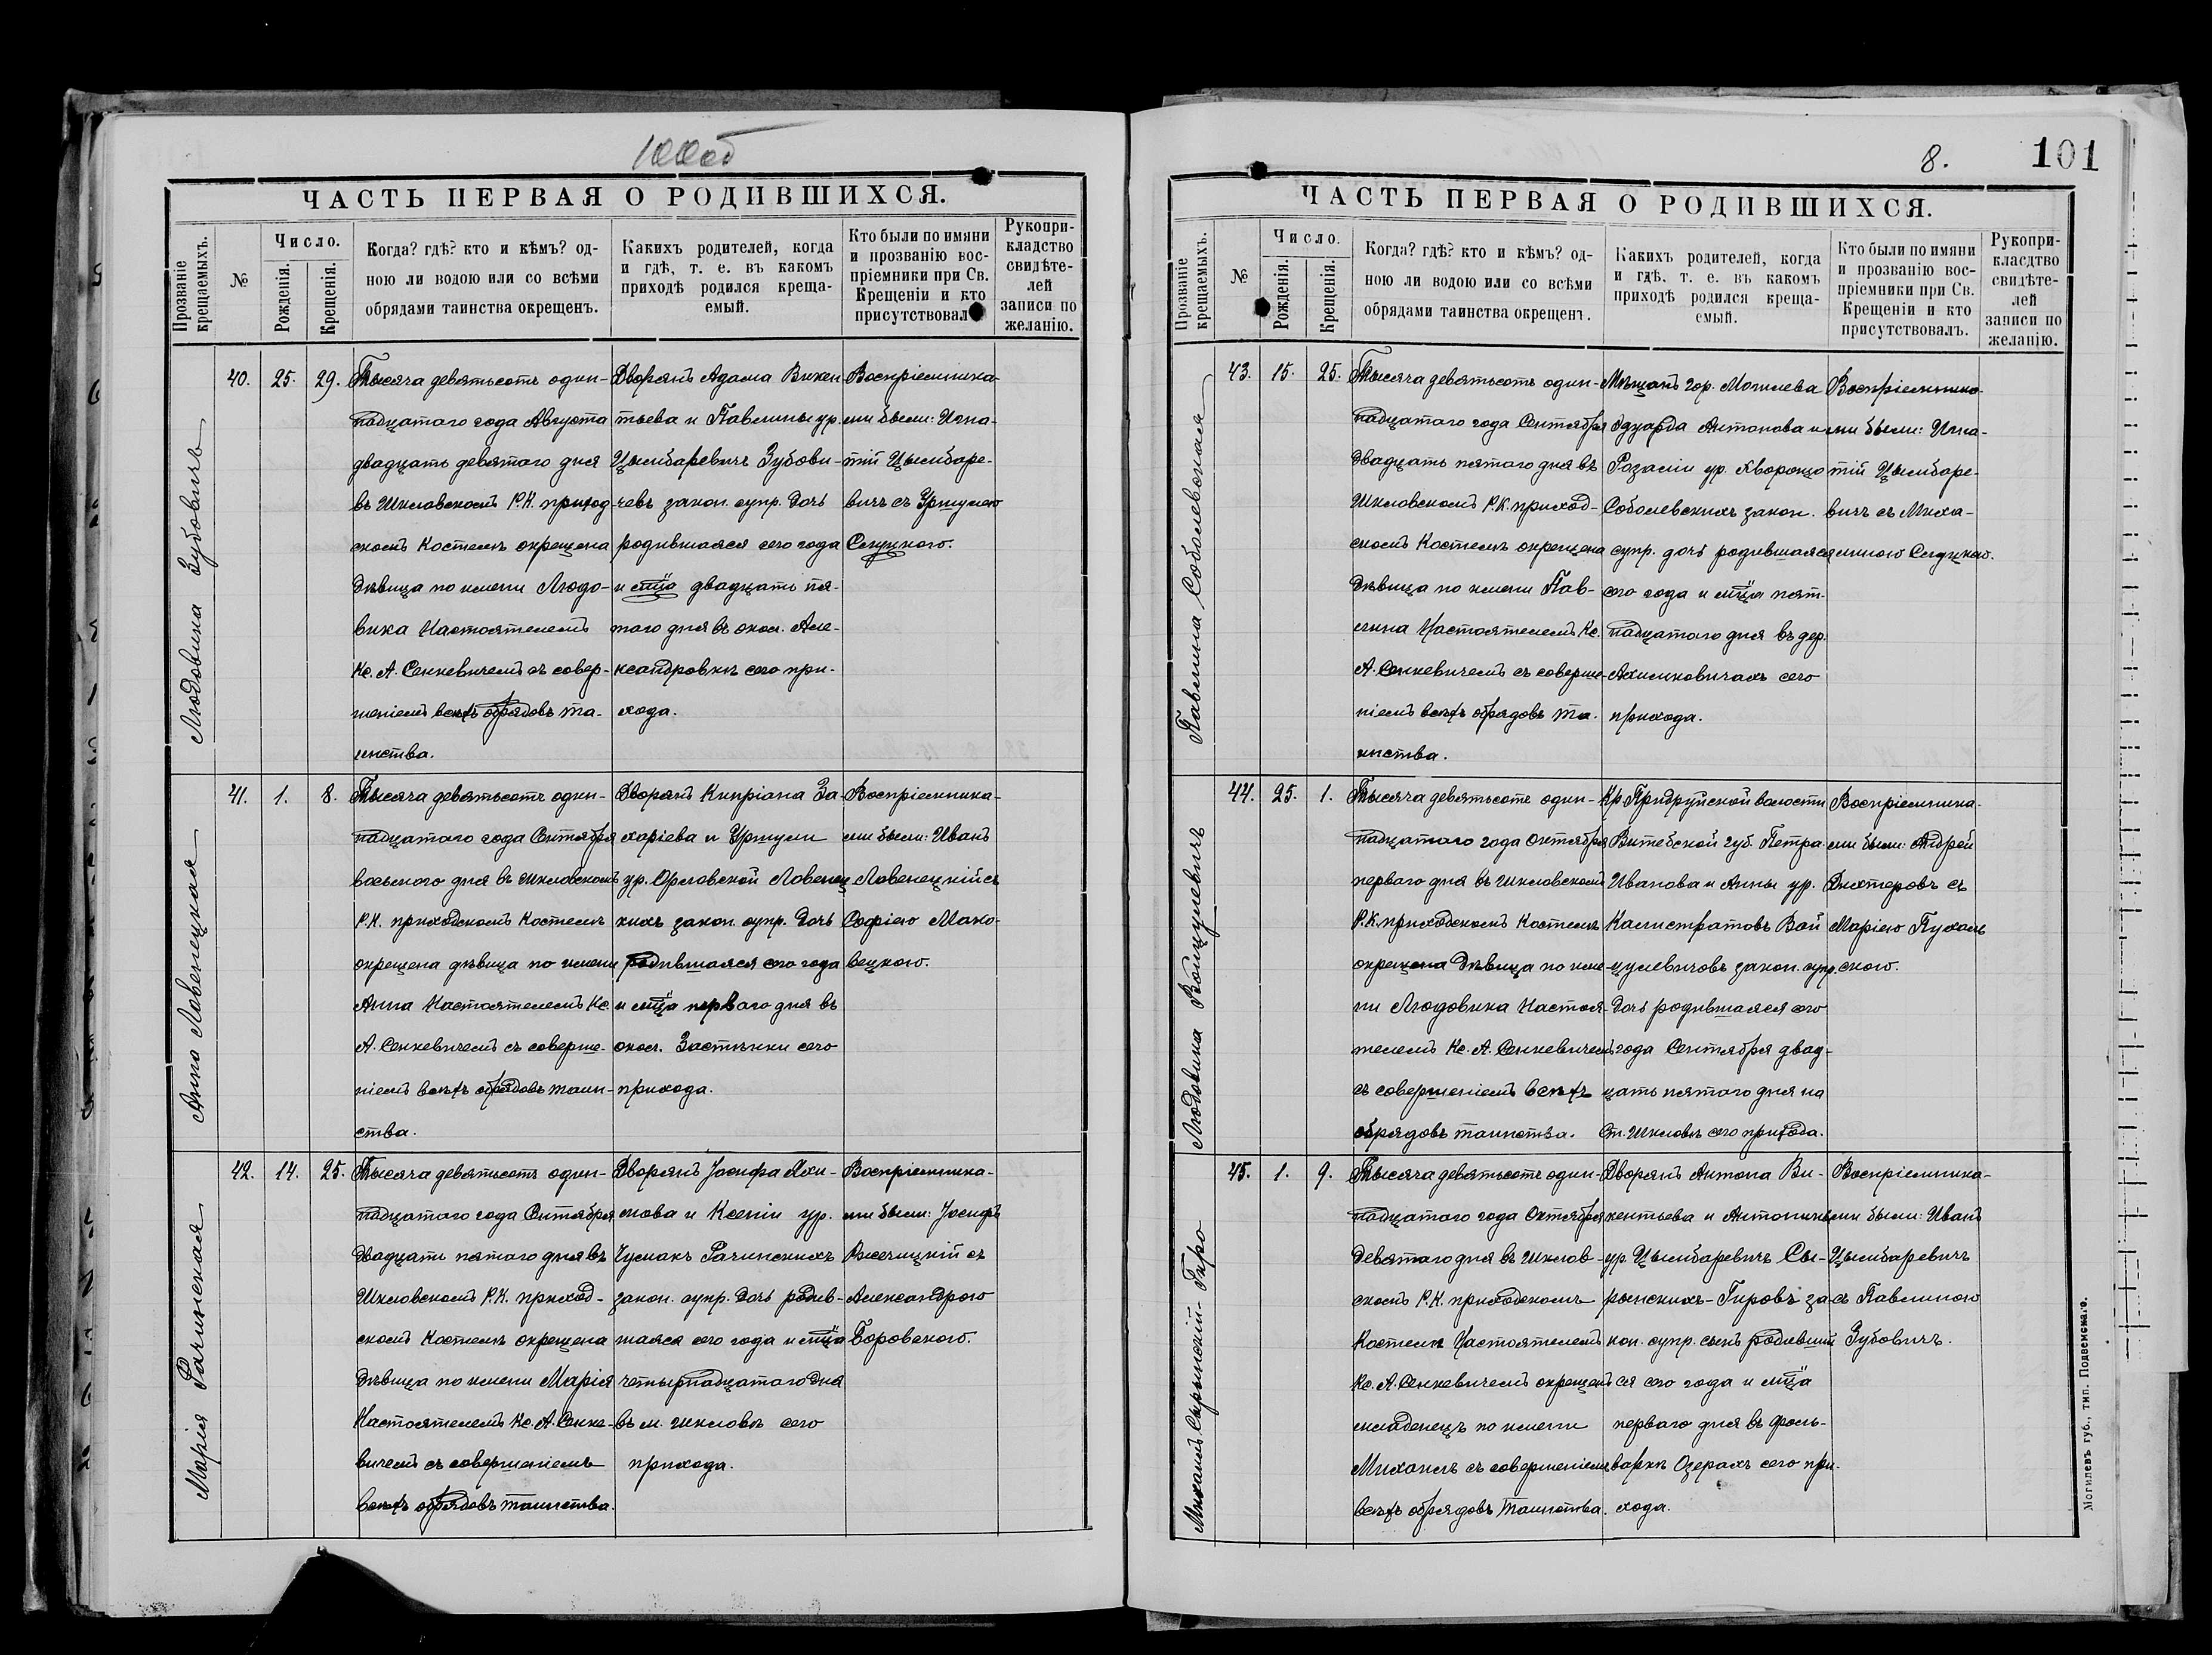 100об
ЧАСТЬ ПЕРВАЯ О РОДИВШИХСЯ.
Прозваніе крещаемыхъ.
№
Число.
Рожденія.
Крещенія.
Когда? гдѣ? кто и кѣмъ? од-
ною ли водою или со всѣми
обрядами таинства окрещенъ.
Какихъ родителей, когда
и гдѣ, т. е. въ какомъ
приходѣ родился креща-
емый.
Кто были по имяни
и прозванію вос-
пріемники при Св.
Крещеніи и кто
присутствовал
Рукопри-
кладство
свидѣте-
лей
записи по
желанію.
Людовика Зубовичъ
40.
25.
29.
Тысяча девятьсотъ один-
надцатаго года Августа
двадцать девятаго дня
въ Шкловскомъ Р.К. приход-
скомъ Костелѣ окрещена
дѣвица по имени Людо-
вика Настоятелемъ
Кс. А. Сенкевичемъ съ совер-
шеніемъ всѣхъ обрядовъ та-
инства.
Дворянъ Адама Викен-
тьева и Павлины ур.
Цымбаревичъ Зубови-
чевъ закон. супр. дочь
родившаяся сего года
и мѣсца двадцать пя-
таго дня въ окол. Але-
ксандровкѣ сего при-
хода.
Воспріемника-
ми были: Игна-
тій Цымбаре-
вичъ съ Уршулею
Слуцкою.
Анна Ловенецкая
41.
1.
8.
Тысяча девятьсотъ один-
надцатаго года Сентября
восьмого дня въ Шкловскомъ
Р.К. приходскомъ Костелѣ
окрещена дѣвица по имени
Анна Настоятелемъ Кс.
А. Сенкевичемъ съ соверше-
ніемъ всѣхъ обрядовъ таин-
ства.
Дворянъ Кипріана За-
харіева и Уршули
ур. Орловской Ловенец-
кихъ закон. супр. дочь
родившаяся сего года
и мѣсца перваго дня въ
окол. Застѣнки сего
прихода.
Воспріемника-
ми были: Иванъ
Ловенецкій съ
Софіею Мако-
вецкою.
Марія Рачинская
42.
14.
25.
Тысяча девятьсотъ один-
надцатаго года Сентября
двадцать пятаго дня въ
Шкловскомъ Р.К. приход-
скомъ Костелѣ окрещена
дѣвица по имени Марія
Настоятелемъ Кс. А. Сенке-
вичемъ съ совершеніемъ
всѣхъ обрядовъ таинства.
Дворянъ Іосифа Яки-
мова и Ксеніи ур.
Чумакъ Рачинскихъ
закон. супр. дочь родив-
шаяся сего года и мѣсца
четырнадцатаго дня
въ м. Шкловѣ сего
прихода.
Воспріемника-
ми были: Іосифъ
съ
Александрою
Боровскою.
8.
101
ЧАСТЬ ПЕРВАЯ О РОДИВШИХСЯ.
Прозваніе крещаемыхъ.
№
Число.
Рожденія.
Крещенія.
Когда? гдѣ? кто и кѣмъ? од-
ною ли водою или со всѣми
обрядами таинства окрещенъ.
Какихъ родителей, когда
и гдѣ, т. е. въ какомъ
приходѣ родился креща-
емый.
Кто были по имяни
и прозванію вос-
пріемники при Св.
Крещеніи и кто
присутствовалъ.
Рукопри-
класдтво
свидѣте-
лей
записи по
желанію.
Павлина Соболевская
43.
15.
25.
Тысяча девятьсотъ один-
надцатаго года Сентября
двадцать пятаго дня въ
Шкловскомъ Р.К. приход-
скомъ Костелѣ окрещена
дѣвица по имени Пав-
лина Настоятелемъ Кс.
А. Сенкевичемъ съ соверше-
ніемъ всѣхъ обрядовъ та-
инства.
Мѣщанъ гор. Могилева
Эдуарда Антонова и
Розаліи ур.
Соболевскихъ закон.
супр. дочь родившаяся
сего года и мѣсца пят-
надцатаго дня въ дер.
сего
прихода.
Воспріемника-
ми были: Игна-
тій Цымбаре-
вичъ съ Миха-
линою Слуцкою.
Людовика Войцулевичъ
44.
25.
1.
Тысяча девятьсотъ один-
надцатаго года Октября
перваго дня въ Шкловскомъ
Р.К. приходскомъ Костелѣ
окрещена дѣвица по име-
ни Людовика Настоя-
телемъ Кс. А. Сенкевичемъ
съ совершеніемъ всѣхъ
обрядовъ таинства.
Кр. Придруйской волости
Витебской губ. Петра
Иванова и Анны ур.
Калистратовъ Вой-
цулевичовъ закон. супр.
дочь родившаяся сего
года Сентября двад-
цать пятаго дня на
ст. Шкловъ сего прихода.
Воспріемника-
ми были: Андрей
Дихтеровъ съ
Маріею Пухаль-
скою.
Михаилъ Сырынскій-Гиро
45.
1.
9.
Тысяча девятьсотъ один-
надцатаго года Октября
девятаго дня въ Шклов-
скомъ Р.К. приходскомъ
Костелѣ Настоятелемъ
Кс. А. Сенкевичемъ окрещенъ
младенецъ по имени
Михаилъ съ совершеніемъ
всѣхъ обрядовъ таинства.
Дворянъ Антона Ви-
кентьева и Антонины
ур. Цымбаревичъ Сы-
рынскихъ-Гировъ за-
кон. супр. сынъ родивший
ся сего года и мѣсца
перваго дня въ фоль-
варкѣ Озерахъ сего при-
хода.
Воспріемника-
ми были: Иванъ
Цымбаревичъ
съ Павлиною
Зубовичъ.
Могилевъ губ., тип. Подземскаго.